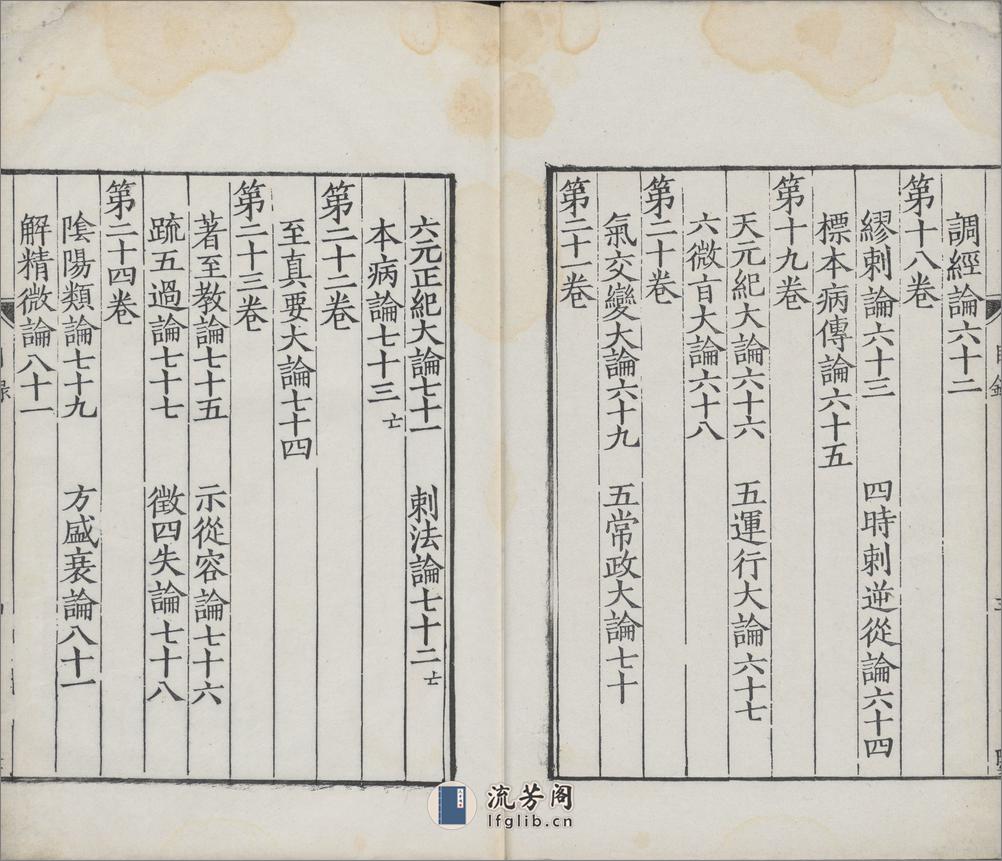 調經論六十二
第十八卷
繆刺論六十三 四時刺逆從論六十四
標本病傳論六十五
第十九卷
天元紀大論六十六 五運行大論六十七
六微盲大論六十八
第二十卷
氣交變大論六十九 五常政大論七十
第二十一卷
六元正紀大論七十一 刺法論七十二亡
本病論七十三亡
第二十二卷
至真要大論七十四
第二十三卷
著至教論七十五 示從容論七十六
疏五過論七十七 徵四失論七十八
第二十四卷
陰陽類論七十九 方盛衰論八十一
解精微論八十一
流芳阁
lfglib.cn